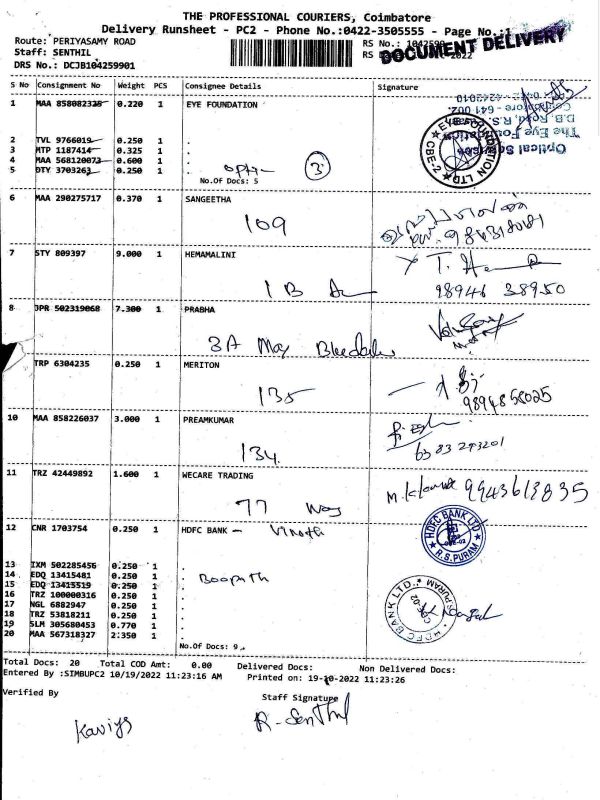 THE PROFESSIONAL COURIERS, Coimbatore
Delivery Runsheet - PC2 - Phone No.:0422-3505555 - Page No.:1
DOCUMENT DELIVERY
Route: PERIYASAMY ROAD
Staff: SENTHIL
DRS No.: DCJB104259901
S No Consignment No Weight PCS Consignee Details Signature
1 MAA 858082325 0.220 1 EYE FOUNDATION
2 TVL 9766019 0.250 1 .
3 MTP 1187414 0.325 1 .
4 MAA 568120073 0.600 1 .
5 DTY 3703263 0.250 1 .
3
No.Of Docs: 5
Optical Services
The Eye Foundation
D.B. Road, R.S. Puram
Coimbatore - 641 002.
EYE FOUNDATION LTD. CBE-2
6 MAA 290275717 0.370 1 SANGEETHA
109
7 STY 809397 9.000 1 HEMAMALINI
1 B
98946 38950
8 JPR 502319068 7.300 1 PRABHA
3A May
TRP 6304235 0.250 1 MERITON
135
9894858025
10 MAA 858226037 3.000 1 PREAMKUMAR
134
6383293201
11 TRZ 42449892 1.600 1 WECARE TRADING
77
9943613835
12 CNR 1703754 0.250 1 HDFC BANK - Vinoth
HDFC BANK LTD R.S. PURAM
13 IXM 502285456 0.250 1 .
14 EDQ 13415481 0.250 1 .
15 EDQ 13415519 0.250 1 .
16 TRZ 100000316 0.250 1 .
17 NGL 6882947 0.250 1 .
18 TRZ 53818211 0.250 1 .
19 SLM 305680453 0.770 1 .
20 MAA 567318327 2.350 1 .
Boopath
HDFC BANK LTD., R.S. PURAM CBE-02
No.Of Docs: 9
Total Docs: 20 Total COD Amt: 0.00 Delivered Docs: Non Delivered Docs:
Entered By :SIMBUPC2 10/19/2022 11:23:16 AM Printed on: 19-10-2022 11:23:26
Verified By Staff Signature
Kaviya R. Senthil